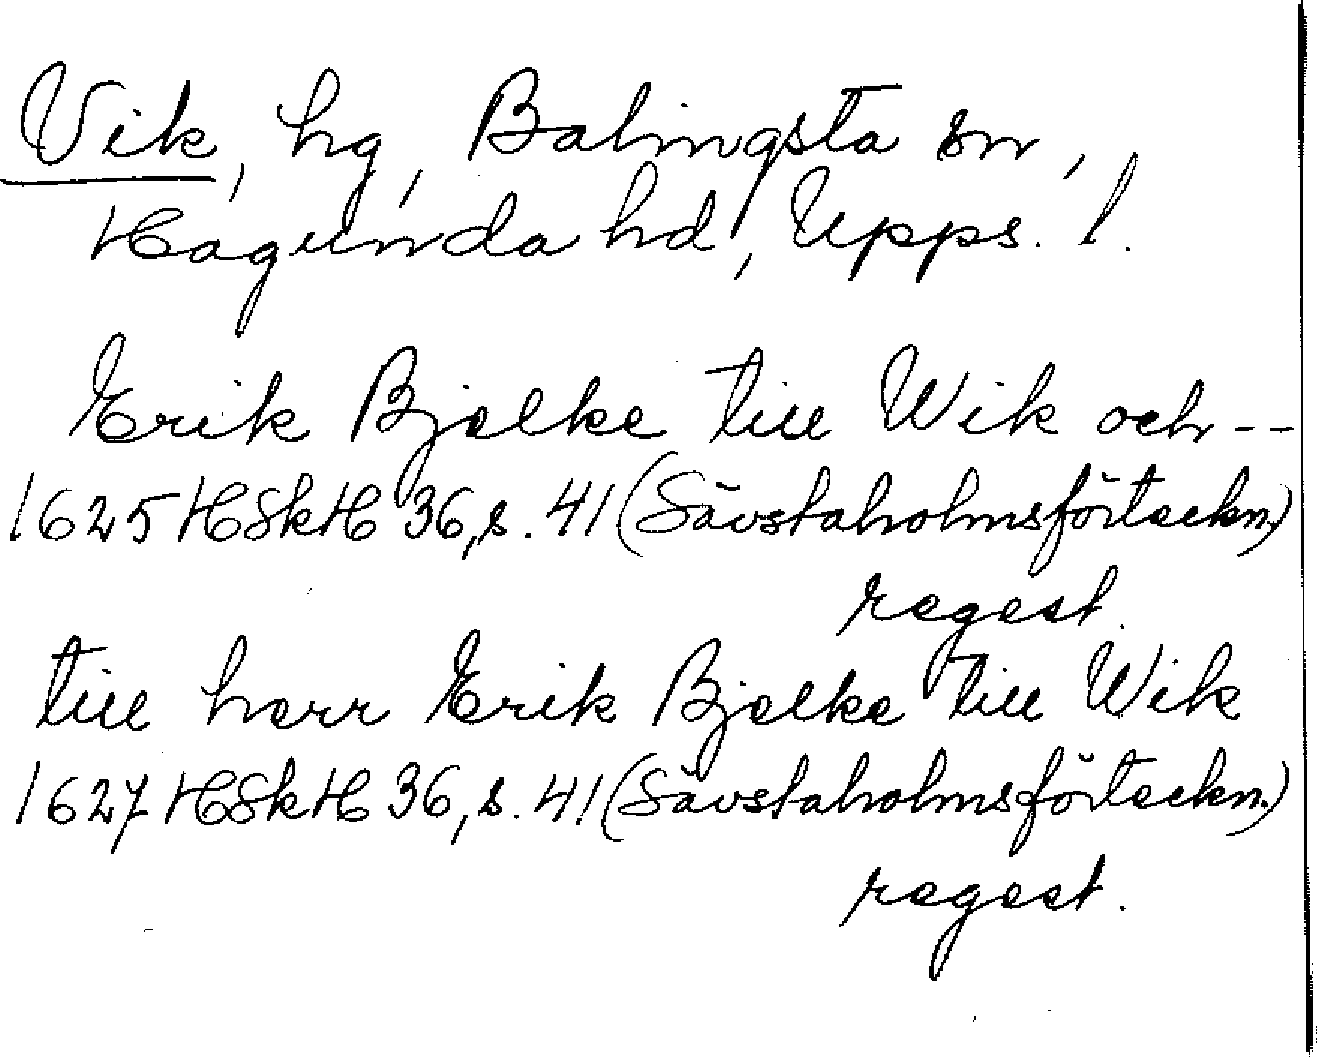 Vik, hg, Balingsta sn,
Hagunda hd, Upps. l.
Erik Bjelke till Wik och --
1625 HSkH 36, s. 41 (Sävstaholmsförteckn.)
regest.
till herr Erik Bjelke till Wik
1627 HSkH 36, s. 41 (Sävstaholmsförteckn.)
regest.